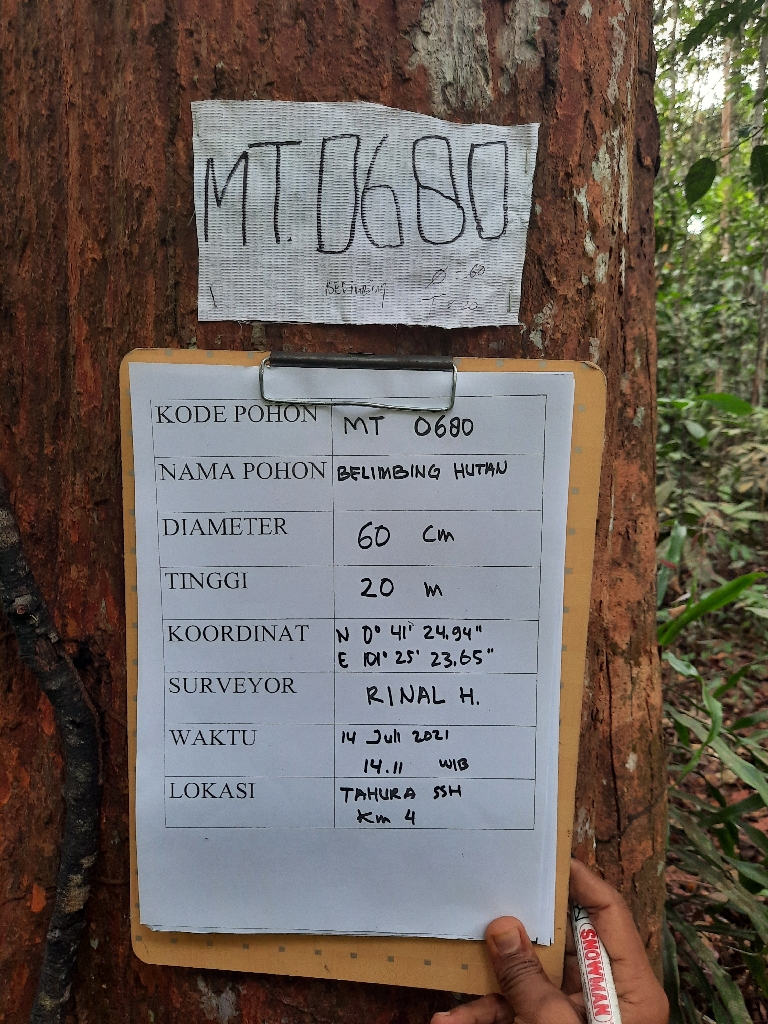 MT. 0680
BELIMBING Ø = 60
T = 20
KODE POHON MT 0680
NAMA POHON BELIMBING HUTAN
DIAMETER 60 Cm
TINGGI 20 m
KOORDINAT N 0° 41' 24.94"
E 101° 25' 23.65"
SURVEYOR RINAL H.
WAKTU 14 Juli 2021
14.11 WIB
LOKASI TAHURA SSH
Km 4
SNOWMAN